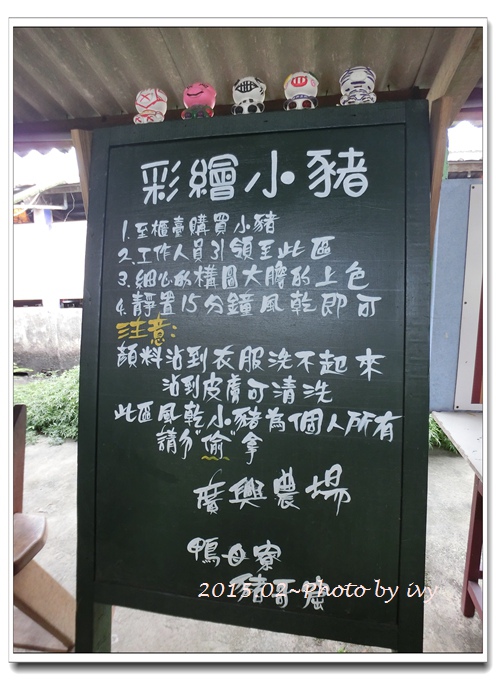 彩繪小豬
1.至櫃臺購買小豬
2.工作人員引領至此區
3.細心的構圖大膽的上色
4.靜置15分鐘風乾即可
注意:
顏料沾到衣服洗不起來
沾到皮膚可清洗
此區風乾小豬為個人所有
請勿"偷"拿
廣興農場
鴨母寮
豬哥窟
2015.02~Photo by ivy